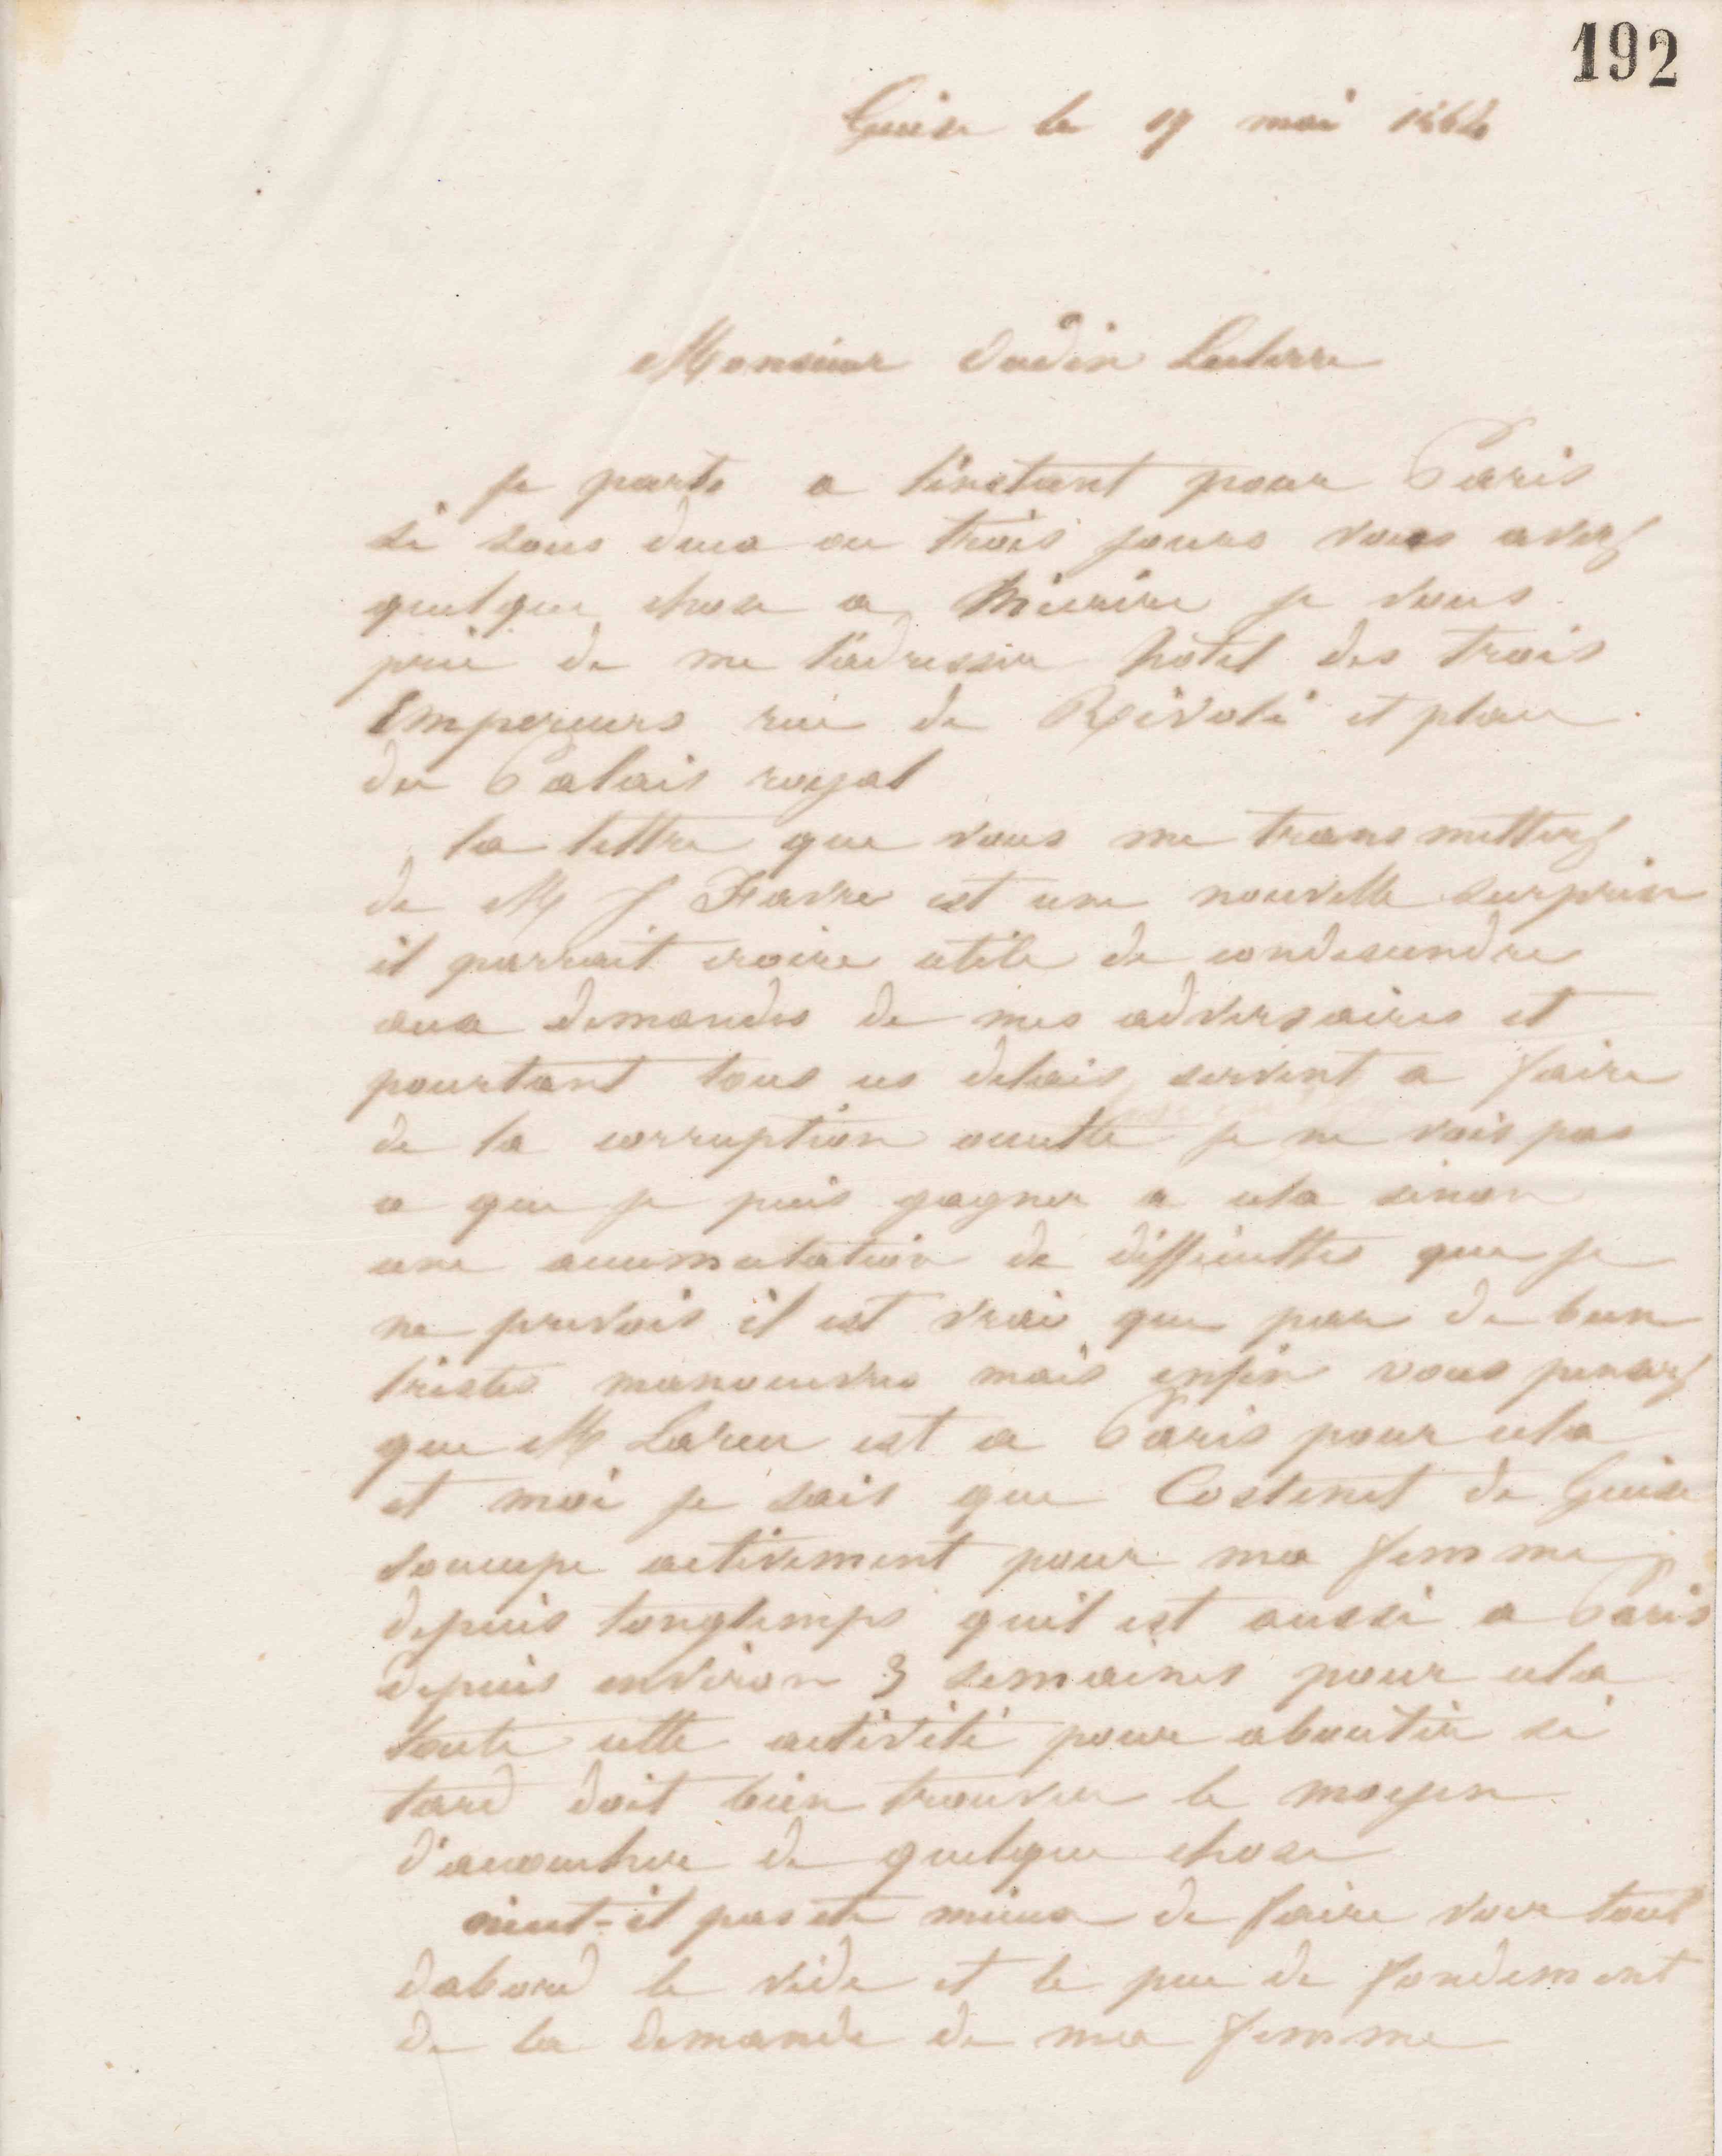 192
Guise le 19 mai 1864
Monsieur Oudin Leclerc
Je parts a l'instant pour Paris
si sous deux ou trois jours vous avez
quelque chose a m'écrire je vous
prie de me l'adresser hotel des trois
Empereurs rue de Rivoli et place
du Palais royal
la lettre que vous me transmettez
de M J Favre est une nouvelle surprise
il parrait croire utile de condescendre
aux demandes de mes adversaires et
pourtant tous ces delais servent a faire
de la corruption occulte je ne vois pas
ce que je puis gagner a cela sinon
une accumulation de difficultes que je
ne prevois il est vrai que par de bien
tristes manoeuvres mais enfin vous pensez
que M Larue est a Paris pour cela
et moi je sais que Costenet de Guise
soccupe activement pour ma femme
depuis longtemps quil est aussi a Paris
depuis environ 3 semaines pour cela
toute cette activité pour aboutir si
tard doit bien trouver le moyen
d'accoucher de quelque chose
n'eut-il pas ete mieux de faire voir tout
dabord le vide et le peu de fondement
de la demande de ma femme